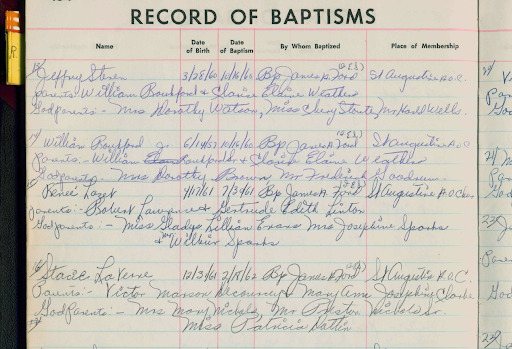 RECORD OF BAPTISMS
Name Date of Birth Date of Baptism By Whom Baptized Place of Membership
Jeffrey Steven 3/28/60 10/16/60 Bp James A. Ford St Augustine A.O.C.
Parents William Bouchford & Clarice Elaine Weathers
Godparents - Mrs Dorothy Watson, Miss Cheryl Mr Harold Wells.
William Jr. 6/14/57 10/16/60 Bp James A. Ford St Augustine A.O.C
Parents - William & Claire Elaine Weathers
Godparents - Mrs Dorothy Brown, Mr Goodrum
Renee 4/17/61 7/3/61 Bp James A. Ford St Augustine A.O.C
Parents - Robert Lawrence & Gertrude Edith Linton
Godparents - Miss Gladys Lillian Evans Mrs Josephine Sparks
& Mr Wilbur Sparks
Stacie LaVerne 12/3/61 2/18/62 Bp James A Ford St Augustin A.O.C.
Parents - Victor & Mary Ann Josephine Clarke
Godparents - Mrs Mary Nichols, Mr. Nichols Sr.
Miss Patricia